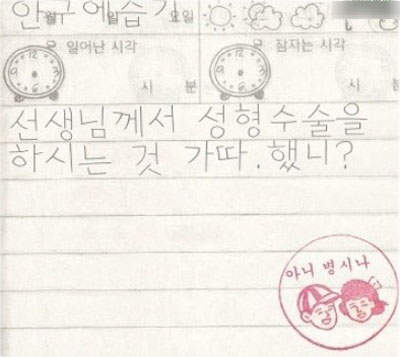 월 일 요일
일어난 시각
잠자는 시각
시 분
시 분
선생님께서 성형수술을
하시는 것 가따. 했니?
아니 병시나